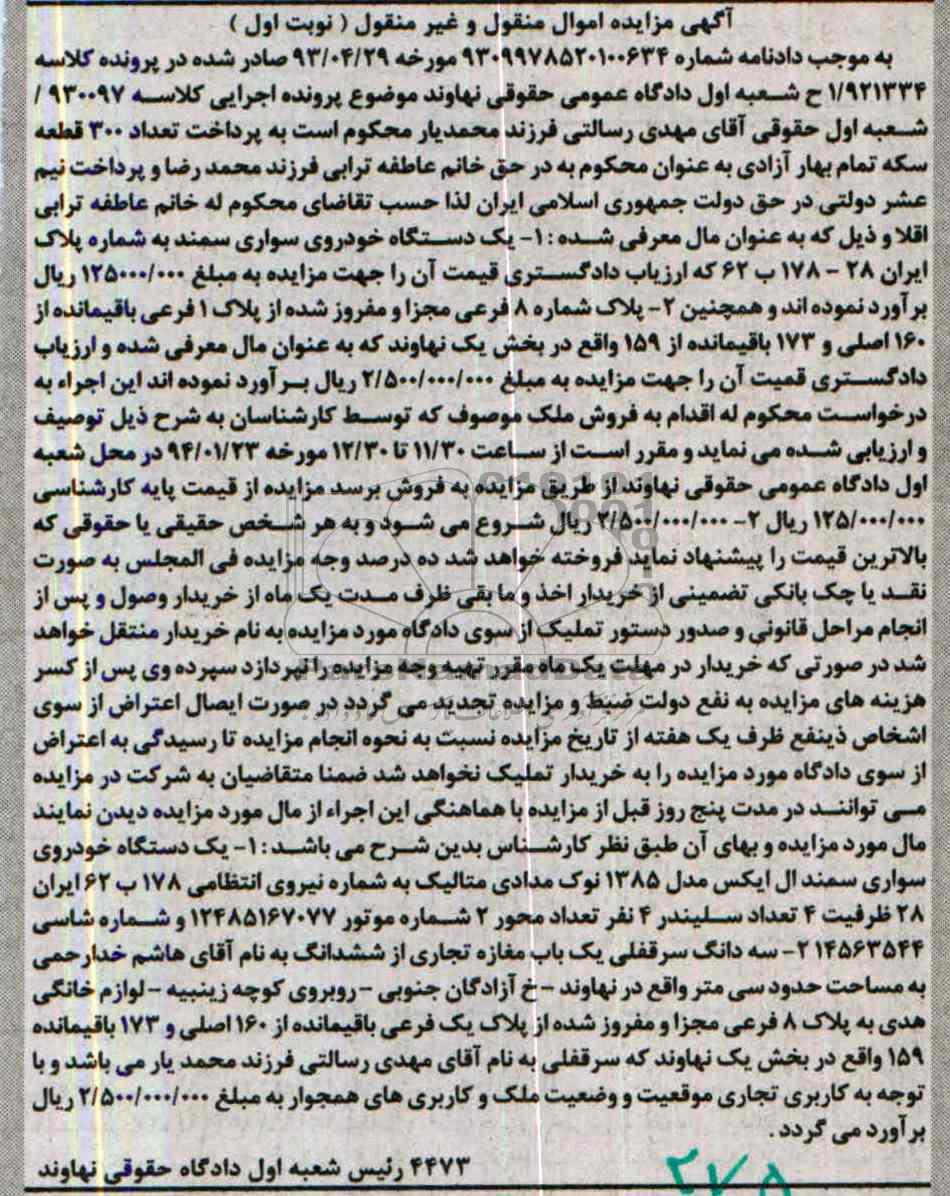 آگهی مزایده اموال منقول و غیر منقول ( نوبت اول )
به موجب دادنامه شماره ۹۳۰۹۹۷۸۵۲۰۱۰۰۶۳۴ مورخه ۹۳/۰۴/۲۹ صادر شده در پرونده کلاسه
۱/۹۲۱۳۳۴ ح شعبه اول دادگاه عمومی حقوقی نهاوند موضوع پرونده اجرایی کلاسه ۹۳۰۰۹۷ /
شعبه اول حقوقی آقای مهدی رسالتی فرزند محمدیار محکوم است به پرداخت تعداد ۳۰۰ قطعه
سکه تمام بهار آزادی به عنوان محکوم به در حق خانم عاطفه ترابی فرزند محمد رضا و پرداخت نیم
عشر دولتی در حق دولت جمهوری اسلامی ایران لذا حسب تقاضای محکوم له خانم عاطفه ترابی
اقلا و ذیل که به عنوان مال معرفی شده : ۱- یک دستگاه خودروی سواری سمند به شماره پلاک
ایران ۲۸ - ۱۷۸ ب ۶۲ که ارزیاب دادگستری قیمت آن را جهت مزایده به مبلغ ۱۲۵۰۰۰/۰۰۰ ریال
برآورد نموده اند و همچنین ۲- پلاک شماره ۸ فرعی مجزا و مفروز شده از پلاک ۱ فرعی باقیمانده از
۱۶۰ اصلی و ۱۷۳ باقیمانده از ۱۵۹ واقع در بخش یک نهاوند که به عنوان مال معرفی شده و ارزیاب
دادگستری قمیت آن را جهت مزایده به مبلغ ۲/۵۰۰/۰۰۰/۰۰۰ ریال برآورد نموده اند این اجراء به
درخواست محکوم له اقدام به فروش ملک موصوف که توسط کارشناسان به شرح ذیل توصیف
و ارزیابی شده می نماید و مقرر است از ساعت ۱۱/۳۰ تا ۱۲/۳۰ مورخه ۹۴/۰۱/۲۳ در محل شعبه
اول دادگاه عمومی حقوقی نهاوند از طریق مزایده به فروش برسد مزایده از قیمت پایه کارشناسی
۱۲۵/۰۰۰/۰۰۰ ریال ۲- ۲/۵۰۰/۰۰۰/۰۰۰ ریال شروع می شود و به هر شخص حقیقی یا حقوقی که
بالاترین قیمت را پیشنهاد نماید فروخته خواهد شد ده درصد وجه مزایده فی المجلس به صورت
نقد یا چک بانکی تضمینی از خریدار اخذ و ما بقی ظرف مدت یک ماه از خریدار وصول و پس از
انجام مراحل قانونی و صدور دستور تملیک از سوی دادگاه مورد مزایده به نام خریدار منتقل خواهد
شد در صورتی که خریدار در مهلت یک ماه مقرر تهیه وجه مزایده را نپردازد سپرده وی پس از کسر
هزینه های مزایده به نفع دولت ضبط و مزایده تجدید می گردد در صورت ایصال اعتراض از سوی
اشخاص ذینفع ظرف یک هفته از تاریخ مزایده نسبت به نحوه انجام مزایده تا رسیدگی به اعتراض
از سوی دادگاه مورد مزایده را به خریدار تملیک نخواهد شد ضمنا متقاضیان به شرکت در مزایده
می توانند در مدت پنج روز قبل از مزایده با هماهنگی این اجراء از مال مورد مزایده دیدن نمایند
مال مورد مزایده و بهای آن طبق نظر کارشناس بدین شرح می باشد : ۱- یک دستگاه خودروی
سواری سمند ال ایکس مدل ۱۳۸۵ نوک مدادی متالیک به شماره نیروی انتظامی ۱۷۸ ب ۶۲ ایران
۲۸ ظرفیت ۴ تعداد سلیندر ۴ نفر تعداد محور ۲ شماره موتور ۱۲۴۸۵۱۶۷۰۷۷ و شماره شاسی
۱۴۵۶۳۵۴۴ ۲- سه دانگ سرقفلی یک باب مغازه تجاری از ششدانگ به نام آقای هاشم خدارحمی
به مساحت حدود سی متر واقع در نهاوند - خ آزادگان جنوبی - روبروی کوچه زینبیه - لوازم خانگی
هدی به پلاک ۸ فرعی مجزا و مفروز شده از پلاک یک فرعی باقیمانده از ۱۶۰ اصلی و ۱۷۳ باقیمانده
۱۵۹ واقع در بخش یک نهاوند که سرقفلی به نام آقای مهدی رسالتی فرزند محمد یار می باشد و با
توجه به کاربری تجاری موقعیت و وضعیت ملک و کاربری های همجوار به مبلغ ۲/۵۰۰/۰۰۰/۰۰۰ ریال
برآورد می گردد .
۴۴۷۳ رئیس شعبه اول دادگاه حقوقی نهاوند
۲۷۵